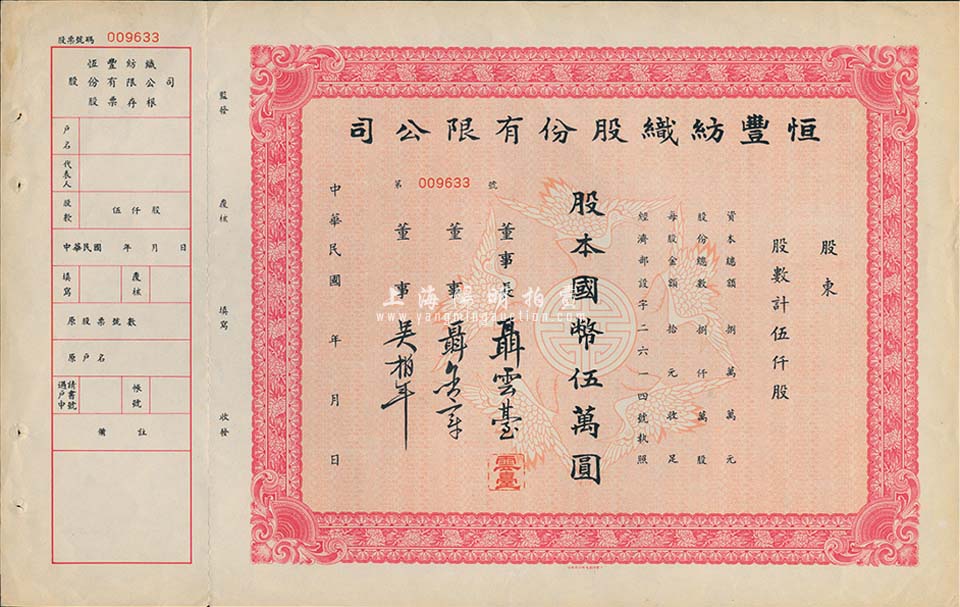 恒豐紡織股份有限公司
股東
股數計伍仟股
資本總額捌萬萬元
股份總數捌仟萬股
每股金額拾元收足
經濟部設字二六一四號執照
股本國幣伍萬圓
董事長聶雲臺
雲臺
董事聶
董事吳柏年
第 009633 號
中華民國 年 月 日
監發
覆核
填寫
收發
股票號碼 009633
恒豐紡織
股份有限公司
股票存根
戶名
代表人
股款 伍仟股
中華民國 年 月 日
填寫
覆核
原股票號數
原戶名
過戶申請書號
帳號
備註
上海陽明拍賣
www.yangmingauction.com